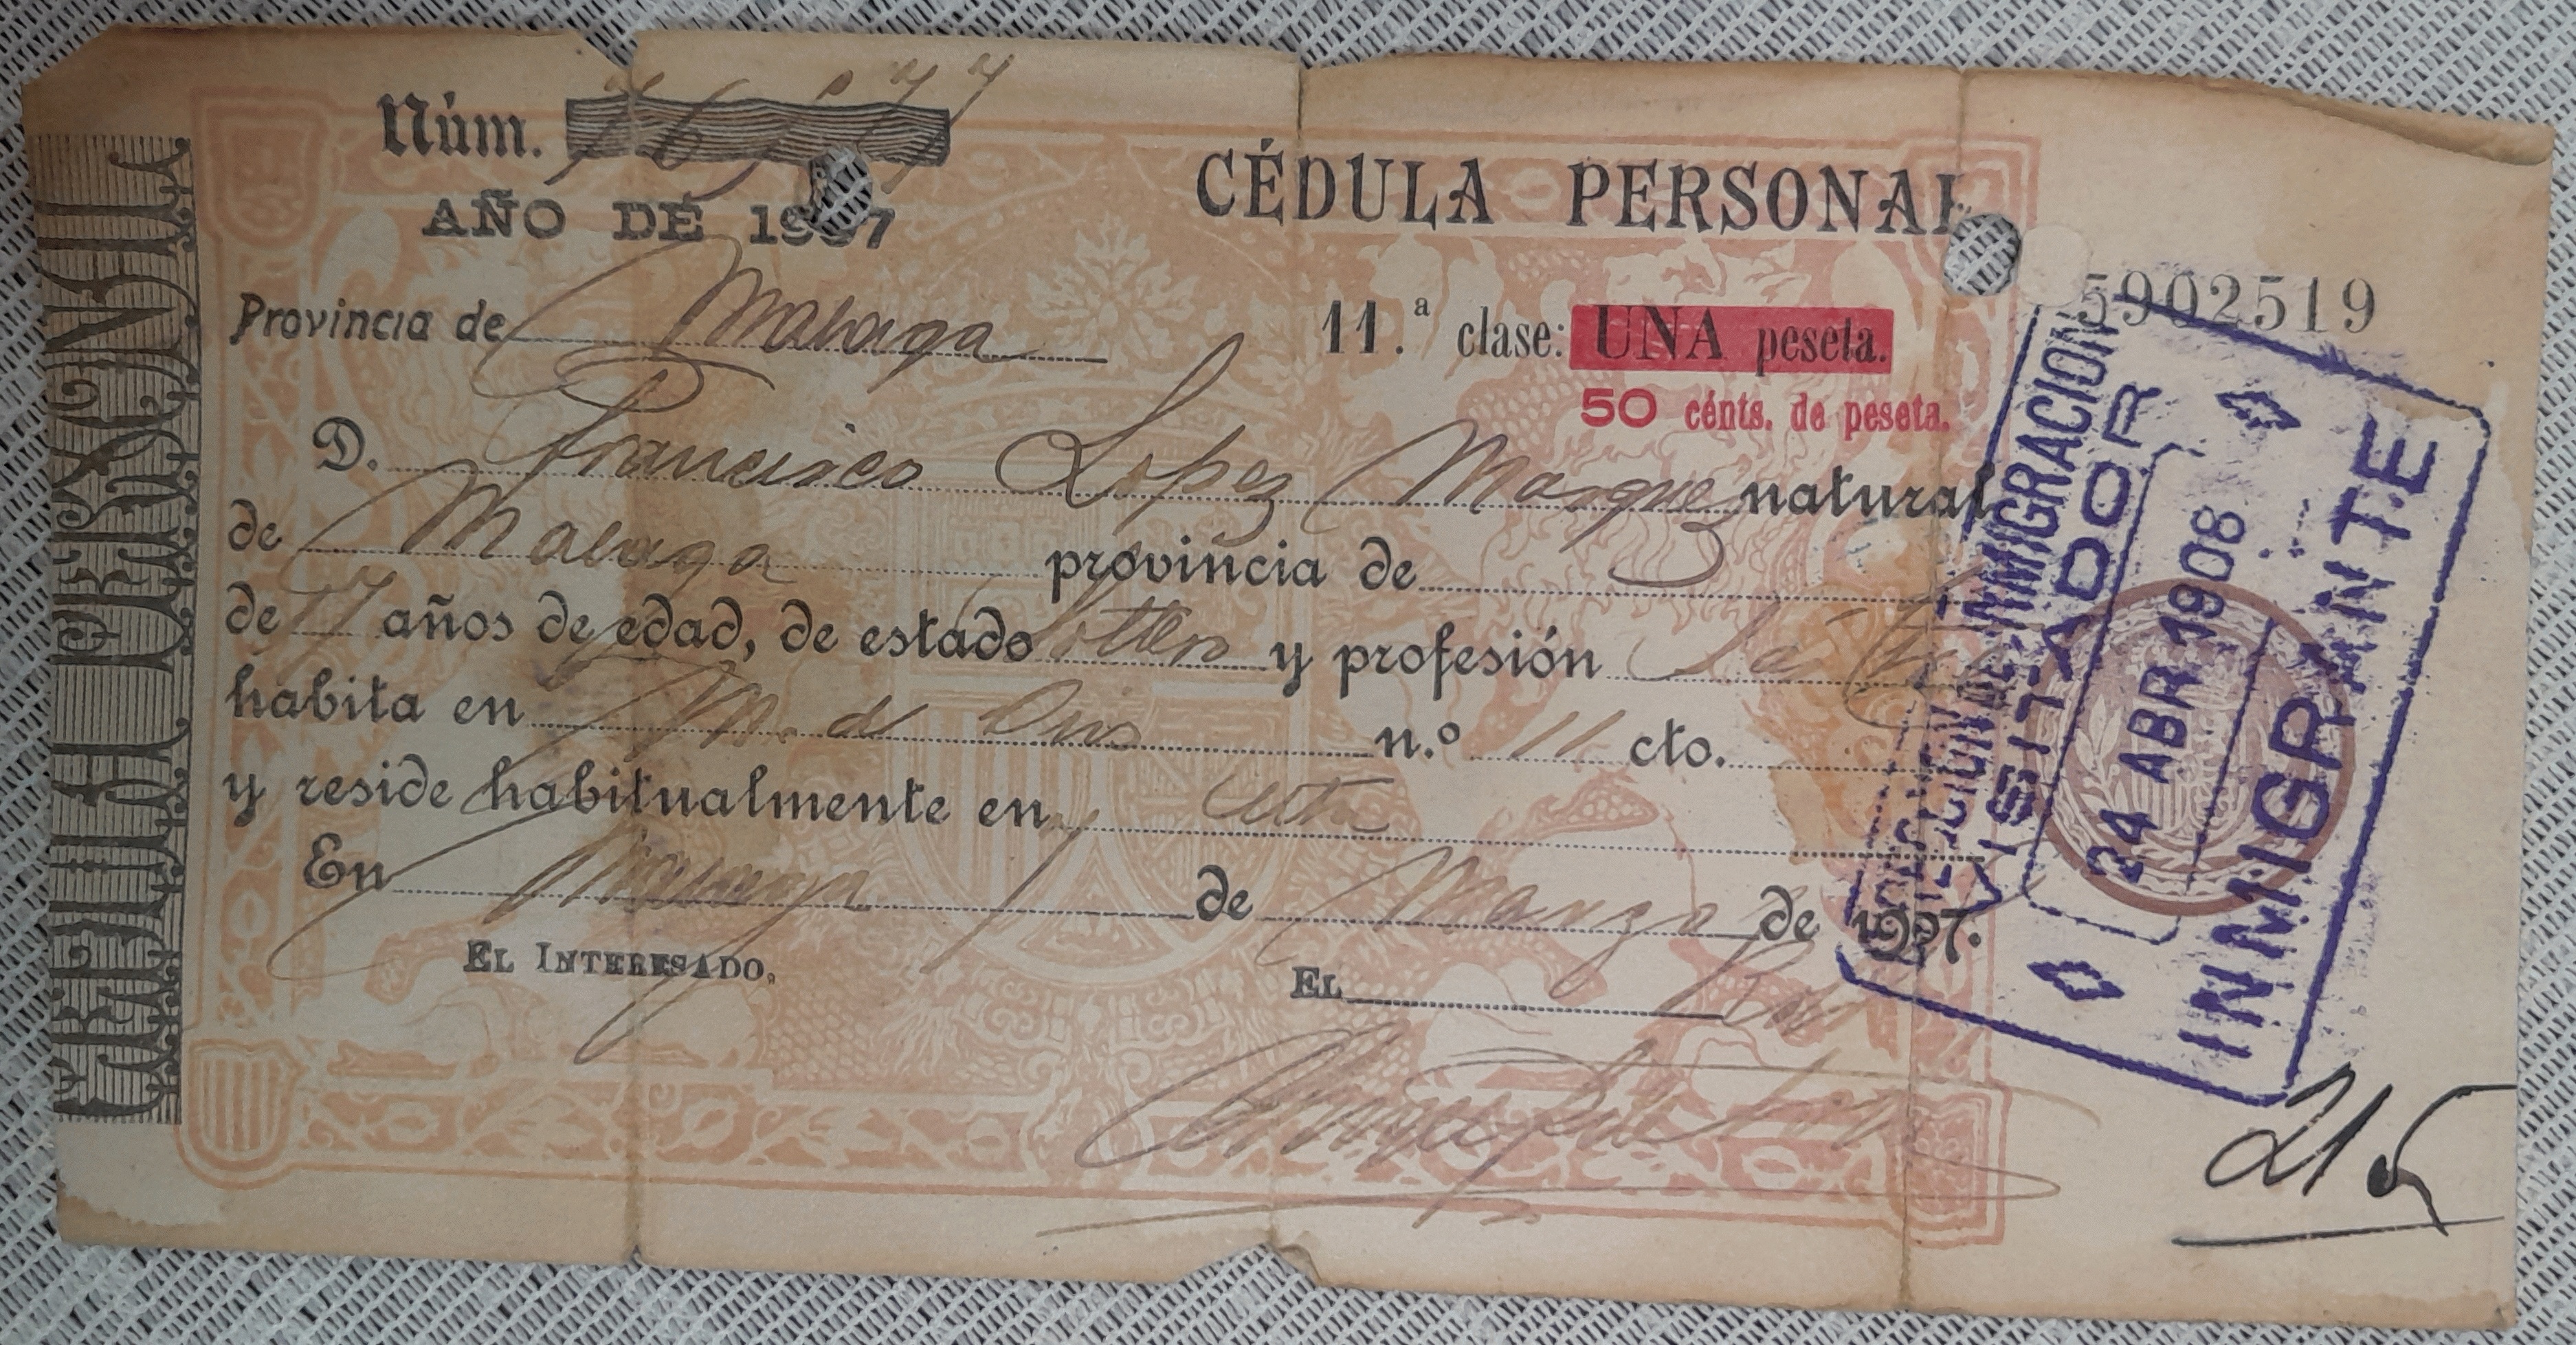 CÉDULA PERSONAL
Núm.
AÑO DE 1907
CÉDULA PERSONAL
5902519
Provincia de Malaga
11.ª clase: UNA peseta.
50 cénts. de peseta.
D. Francisco Lopez Marquez natural
de Malaga provincia de
de 17 años de edad, de estado Soltero y profesión
habita en n.º 11 cto.
y reside habitualmente en
En Malaga de Marzo de 1907.
EL INTERESADO,
EL
INMIGRACION
VISITADOR
24 ABR 1908
INMIGRANTE